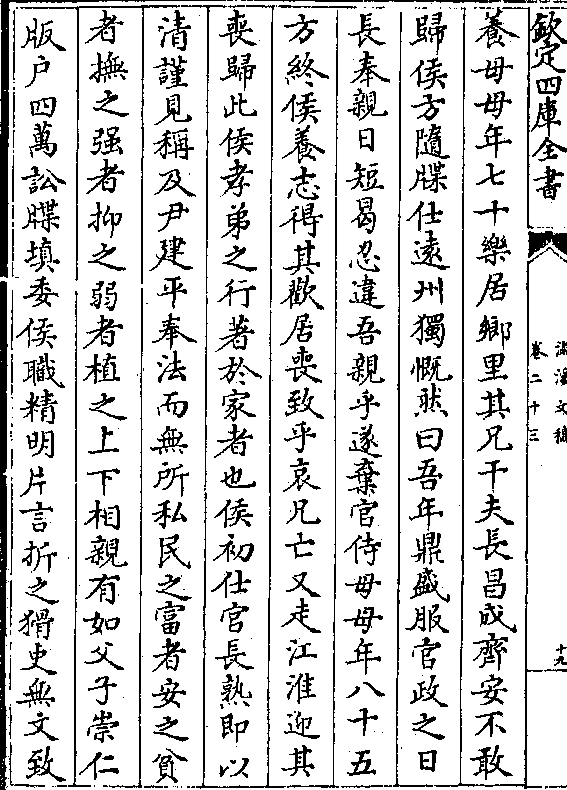 欽定四庫全書
滋溪文稿
卷二十三
十九
養母母年七十樂居鄉里其兄千夫長昌戍齊安不敢
歸侯方隨牒仕遠州獨慨然曰吾年鼎盛服官政之日
長奉親日短曷忍違吾親乎遂棄官侍母母年八十五
方終侯養志得其歡居喪致乎哀兄亡又走江淮迎其
喪歸此侯孝弟之行著於家者也侯初仕官長熟即以
清謹見稱及尹建平奉法而無所私民之富者安之貧
者撫之强者抑之弱者植之上下相親有如父子崇仁
版户四萬訟牒填委侯職精明片言折之猾吏無文致